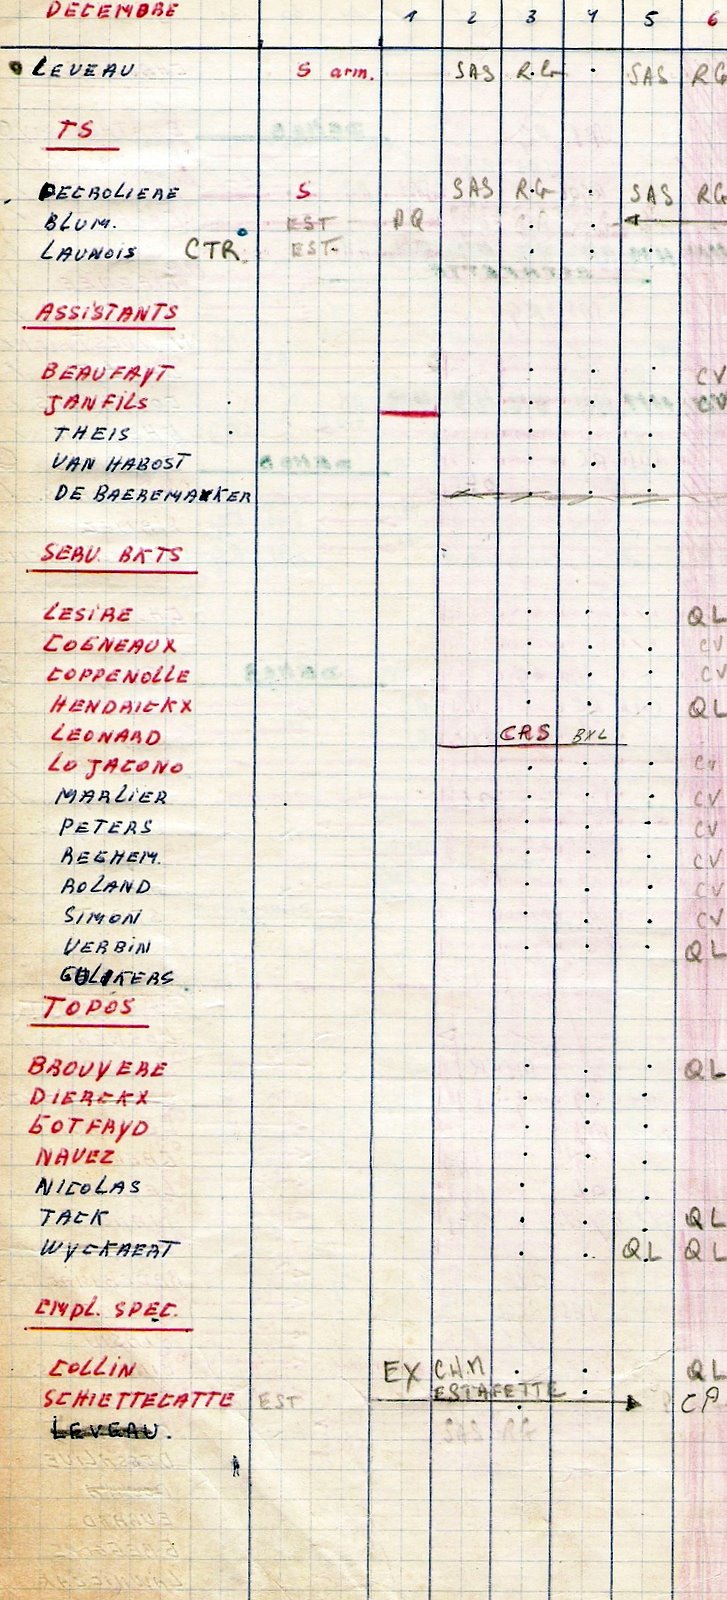 DECEMBRE 1 2 3 4 5 6
LEVEAU S arm. SAS R.G . SAS RG
TS
DECROLIERE S SAS R.G . SAS RG
BLUM. EST DQ
LAUNOIS CTR. EST.
ASSISTANTS
BEAUFAYT CV
JANFILS CV
THEIS
VAN HABOST
DE BAEREMAEKER
SERV. BKTS
LESIRE QL
COGNEAUX CV
COPPENOLLE CV
HENDRICKX QL
LEONARD CRS BXL
LO JACONO CV
MARLIER CV
PETERS CV
REGHEM. CV
ROLAND CV
SIMON CV
VERBIN QL
GULIKERS
TOPOS
BROUYERE QL
DIERCKX
GOTFRYD
NAVEZ
NICOLAS
TACK QL
WYCKAERT QL QL
EMPL. SPEC.
COLLIN EX CH.M QL
SCHIETTECATTE EST ESTAFETTE CP
LEVEAU.